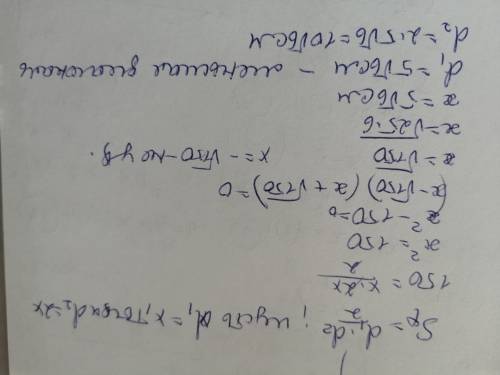 Sр = d₁·d₂/2 ; пусть d₁ = x, тогда d₂ = 2x
150 = x·2x/2
x² = 150
x² - 150 = 0
(x-√150) (x + √150) = 0
x = √150 x = - √150 - не уд.
x = √25·6
x = 5√6 см
d₁ = 5√6 см - меньшая диагональ
d₂ = 2·5√6 = 10√6 см